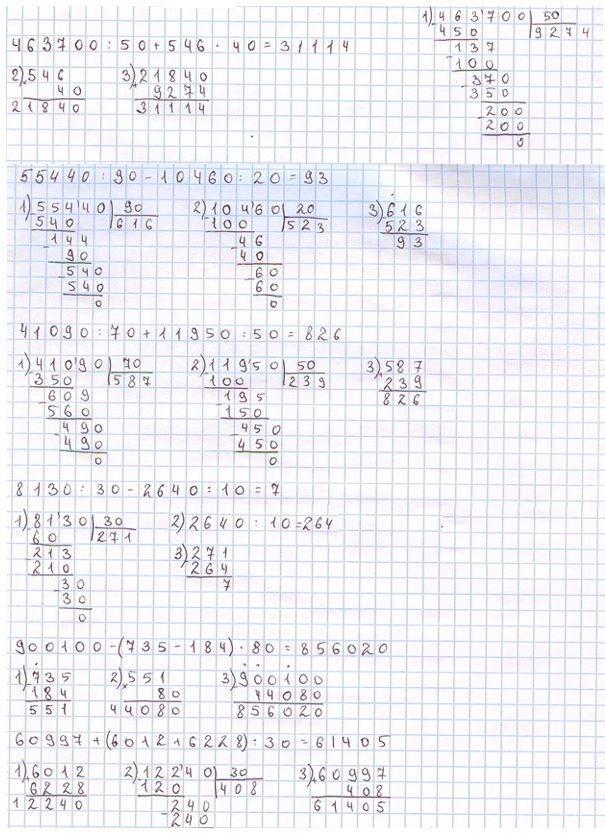 463700 : 50 + 546 · 40 = 31114
1) 463'700 | 50
- 450 | 9274
137
- 100
370
- 350
200
- 200
0
2) × 546
40
21840
3) + 21840
9274
31114
55440 : 90 - 10460 : 20 = 93
1) - 554'40 | 90
540 | 616
- 144
90
- 540
540
0
2) - 104'60 | 20
100 | 523
- 46
40
- 60
60
0
3) - 616
523
93
41090 : 70 + 11950 : 50 = 826
1) - 410'90 | 70
350 | 587
- 609
560
- 490
490
0
2) - 119'50 | 50
100 | 239
- 195
150
- 450
450
0
3) + 587
239
826
8130 : 30 - 2640 : 10 = 7
1) - 81'30 | 30
60 | 271
- 213
210
- 30
30
0
2) 2640 : 10 = 264
3) - 271
264
7
900100 - (735 - 184) · 80 = 856020
1) - 735
184
551
2) × 551
80
44080
3) - 900100
44080
856020
60997 + (6012 + 6228) : 30 = 61405
1) + 6012
6228
12240
2) - 122'40 | 30
120 | 408
- 240
240
3) + 60997
408
61405